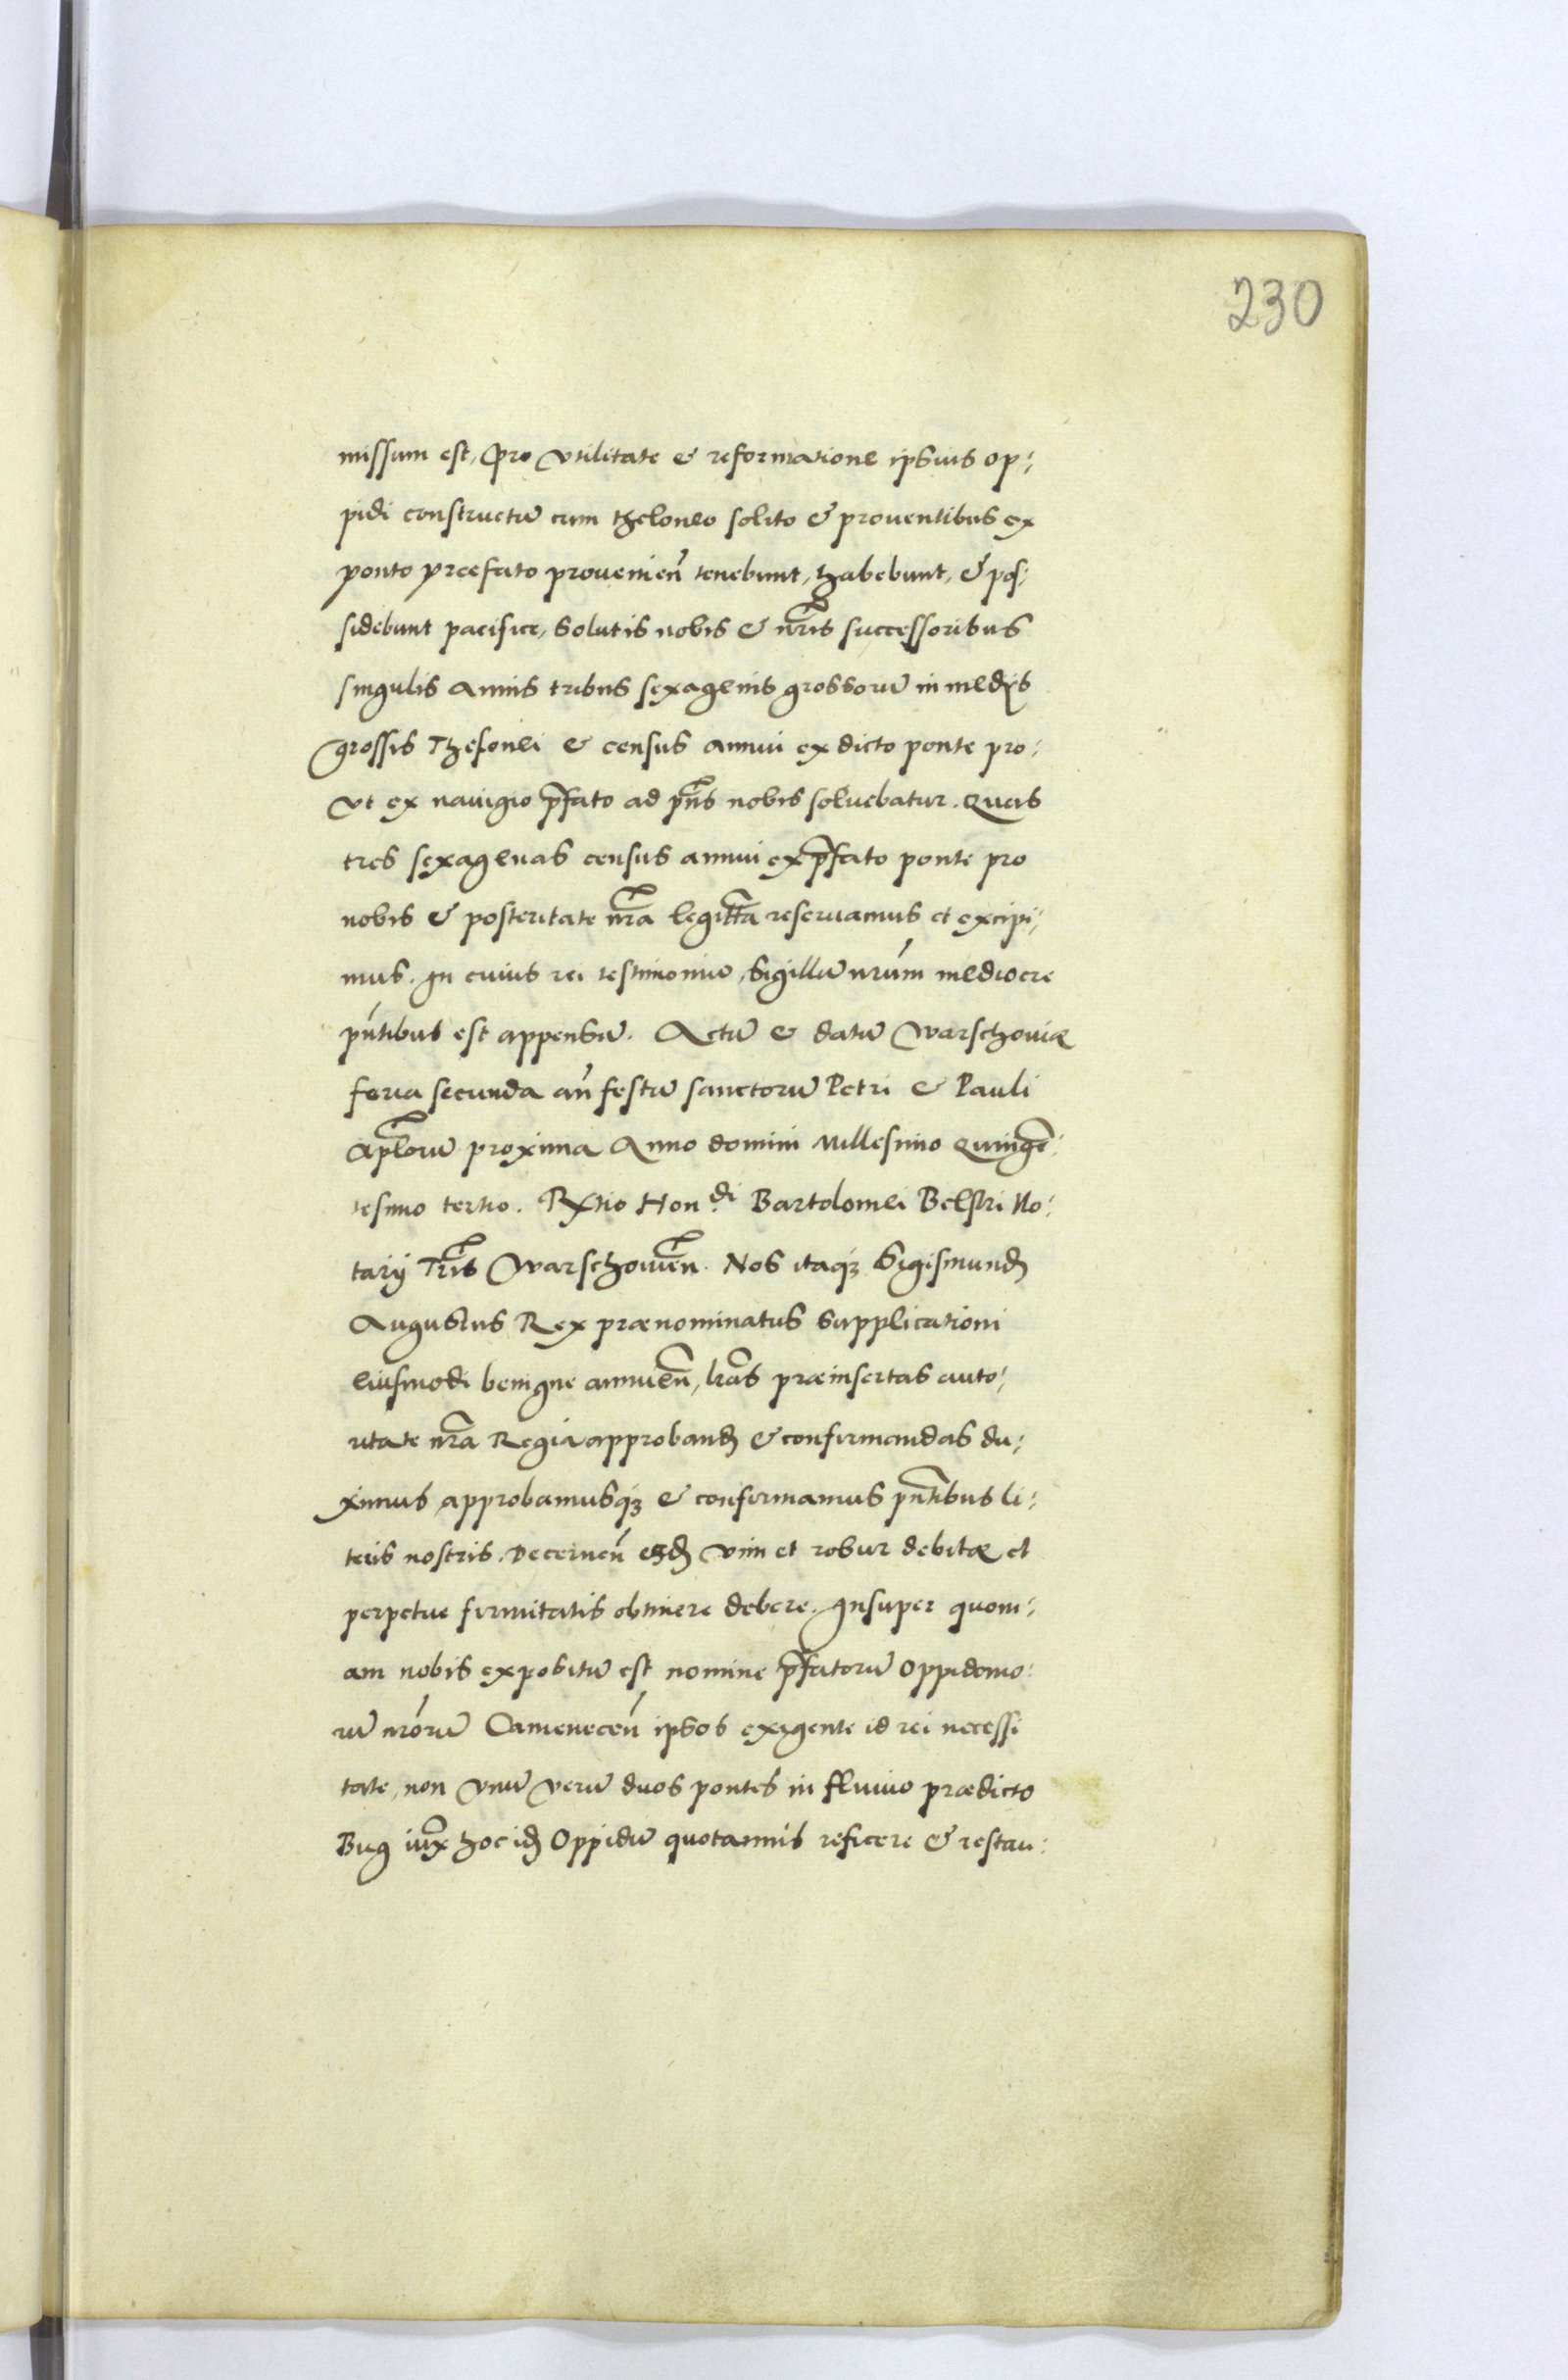 230
missum est, pro vtilitate & reformatione ipsius op:
pidi constructũ cum theloneo solito & prouentibus ex
ponto præfato prouenieñ tenebunt, habebunt, & pos:
sidebunt pacifice, Solutis nobis & nr̃is successoribus
singulis annis tribus sexagenis grossorũ in medys
grossis Thelonei & census annui ex dicto ponte pro:
vt ex nauigio p̃fato ad pñs nobis soluebatur. Quas
tres sexagenas census annui ex p̃fato ponte pro
nobis & posteritate nr̃a legitt̃a reseruamus et excipi:
mus. In cuius rei testimoniũ, Sigillũ nrũm mediocre
pñtibus est appensũ. Actũ & datũ Warschouiæ
feria secunda añ festũ sanctorũ Petri & Pauli
Apl̃orũ proxima Anno domini Millesimo Quingẽ:
tesimo tertio. Rl̃tio Hon.di Bartolomei Belsri No:
tarij Tr̃is Warschouieñ. Nos itaq3 Sigismund9
Augustus Rex prænominatus supplicationi
eiusmodi benigne annueñ, lr̃as præinsertas auto:
ritate nr̃a Regia approband9 & confirmandas du:
ximus approbamusq3 & confirmamus pñtibus li:
teris nostris. Decerneñ easd9 vim et robur debitæ et
perpetue firmitatis obtinere debere. Insuper quoni:
am nobis expositũ est nomine p̃fatorũ Oppidano:
rũ nrõrũ Cameneceñ ipsos exigente id rei necessi
tate, non vnũ verũ duos pontes in fluuio prædicto
Bug iux̃ hoc id9 Oppidũ quotannis reficere & restau: